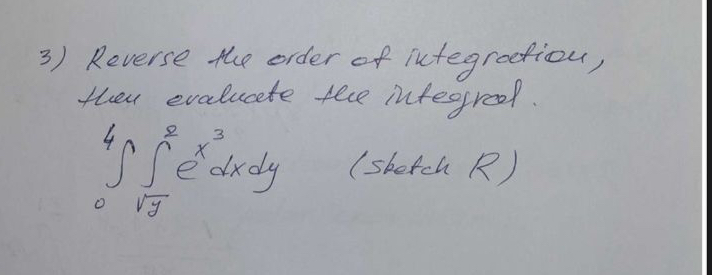 3) Reverse the order of integration,
then evaluate the integral.
∫₀⁴ ∫_√y² e^x³ dx dy (Sketch R)